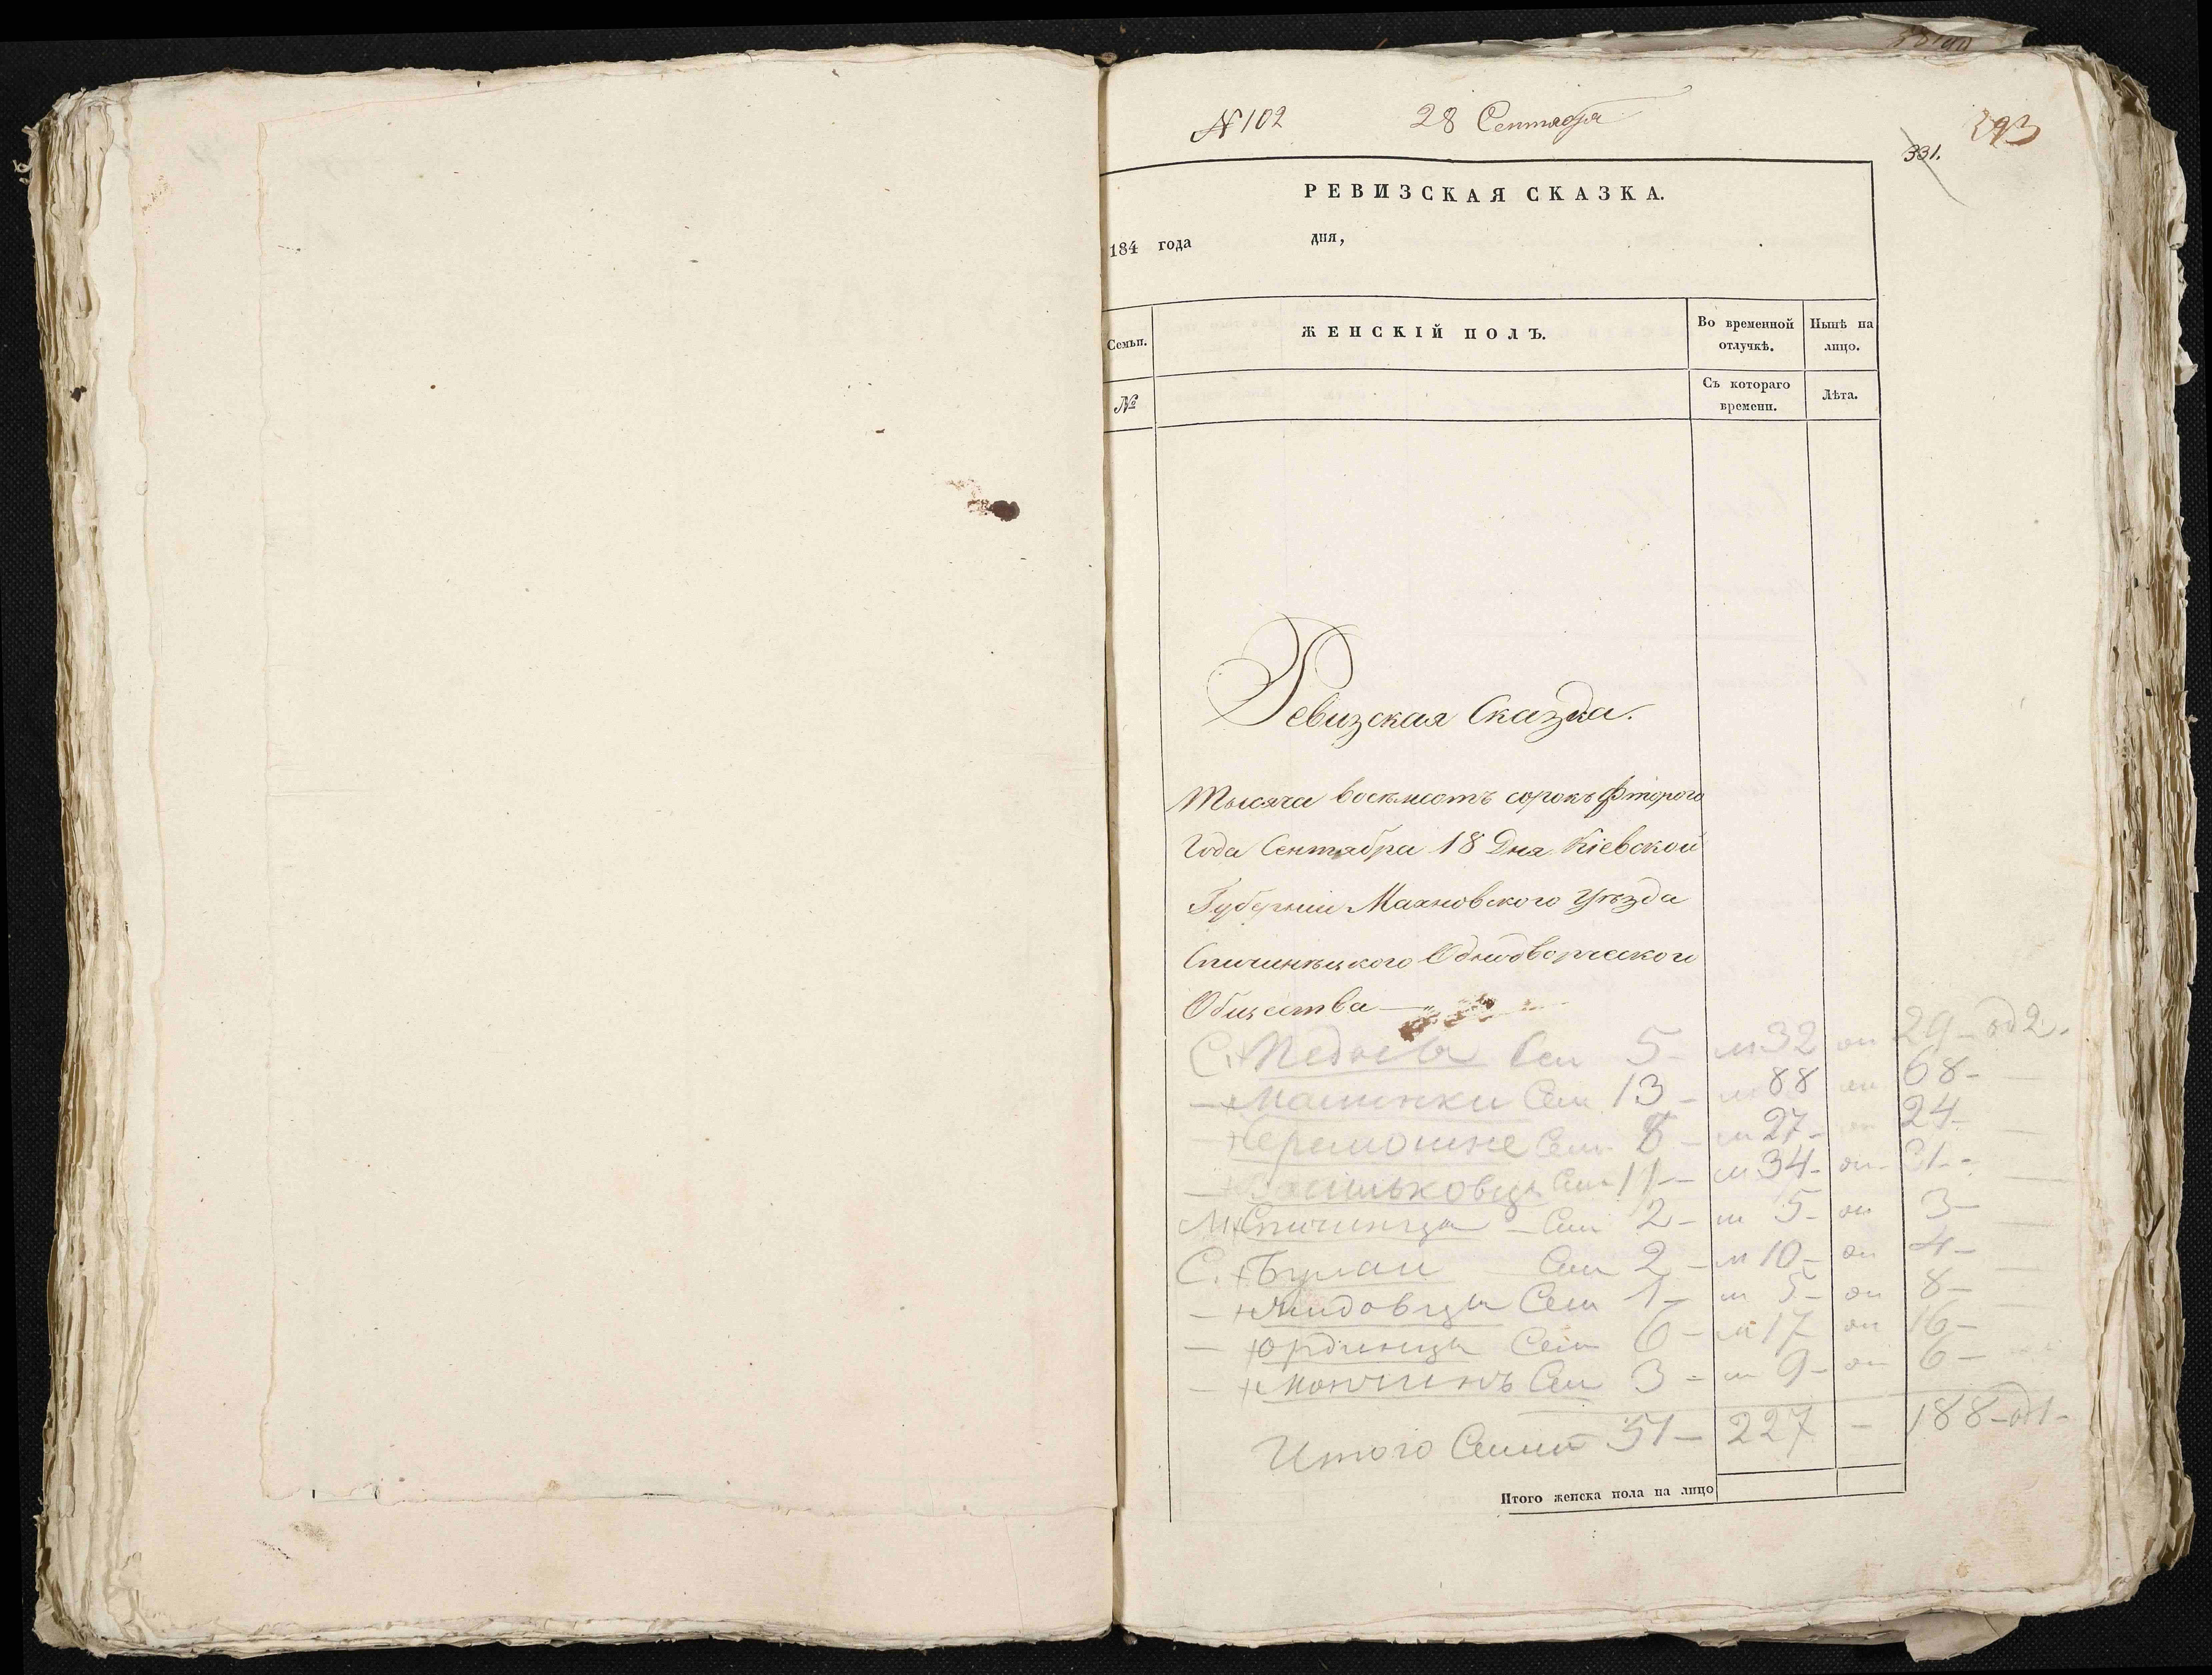 № 102 28 Сентября
331. 293
РЕВИЗСКАЯ СКАЗКА.
184 года дня,
Семьи. ЖЕНСКІЙ ПОЛЪ. Во временной отлучкѣ. Нынѣ на лицо.
№ Съ котораго времени. Лѣта.
Ревизская Сказка.
Тысяча восемсотъ сорокъ фторого
Года Сентября 18 Дня Кіевской
Губерніи Махновского Уѣзда
Спичинѣцкого Однодворческого
Общества
С. + Педосы Сем 5 - м 32 29 - 2.
— + Машинки Сем 13 - м 88 68 -
Сем 8 - м 27 - 24 -
— Сем 11 - м 34 - 31 -
М + Спичинцы - Сем 2 - м 5 - 3 -
С. + Булаи Сем 2 - м 10 - 4 -
— Сем 1 - м 5 - 8 -
— + Юрдинцы Сем 6 - м 17 16 -
— + Мончинъ Сем 3 - м 9 - 6 -
Итого Семей 51 - 227 - 188 -
Итого женска пола на лицо